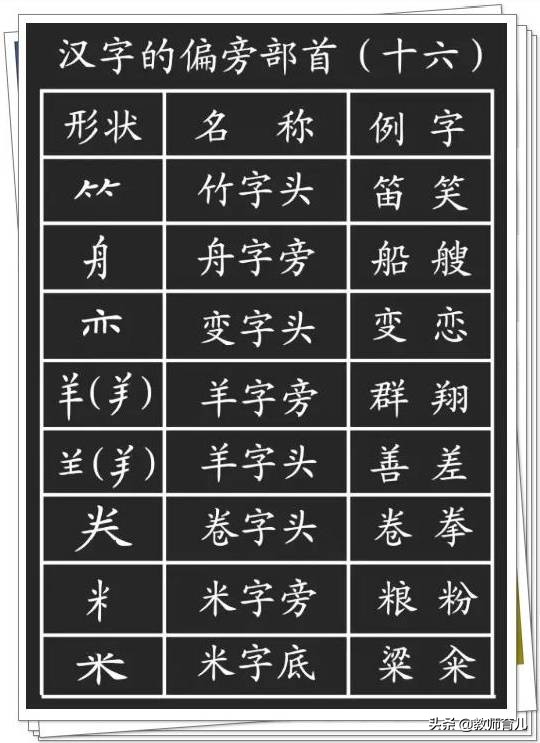 汉字的偏旁部首（十六）
形状 名称 例字
⺮ 竹字头 笛 笑
舟 舟字旁 船 艘
亦 变字头 变 恋
羊(⺶) 羊字旁 群 翔
⺷(⺶) 羊字头 善 差
龹 卷字头 卷 拳
米 米字旁 粮 粉
米 米字底 粱 籴
头条 @教师育儿